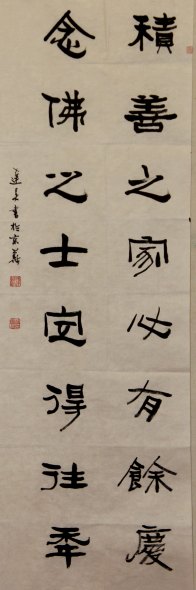 積善之家必有餘慶
念佛之士定得往
書於京華